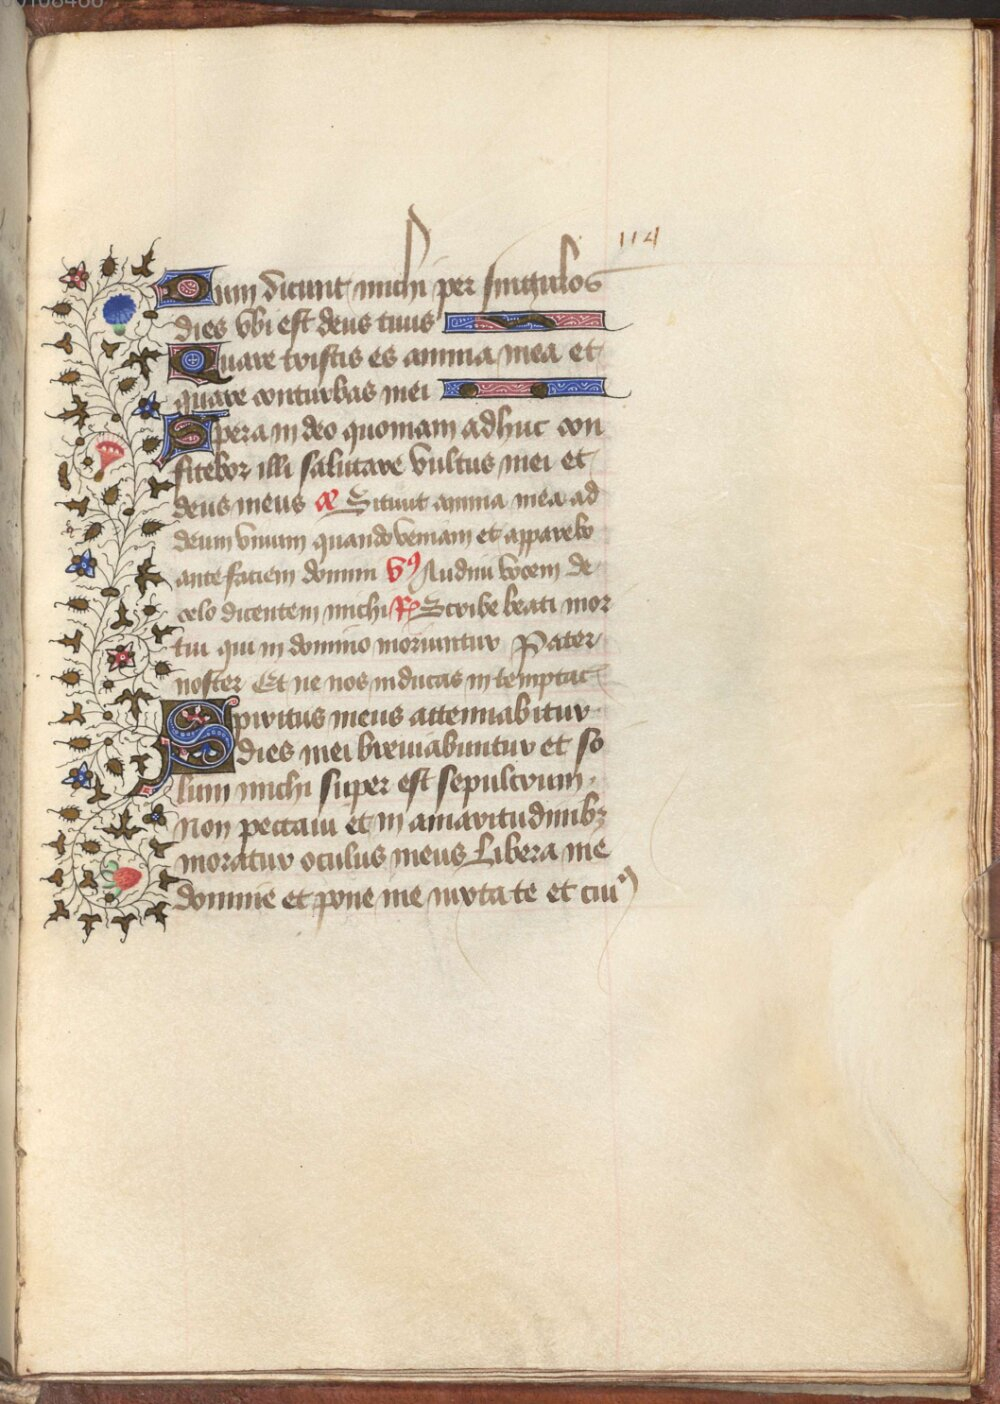 114
Dum dicunt michi per singulos
dies vbi est deus tuus
Quare tristis es anima mea et
quare conturbas mei
Spera in deo quoniam adhuc con
fitebor illi salutare vultus mei et
deus meus a Sitiuit anima mea ad
deum viuum quando veniam et apparebo
ante faciem domini V9 Audiui vocem de
celo dicentem michi R Scribe beati mor
tui qui in domino moriuntur Pater
noster Et ne nos inducas in temptac
Spiritus meus attenuabitur
dies mei breuiabuntur et so
lum michi super est sepulcrum.
Non peccaui et in amaritudinibz
moratur oculus meus Libera me
domine et pone me iuxta te et cuiꝰ